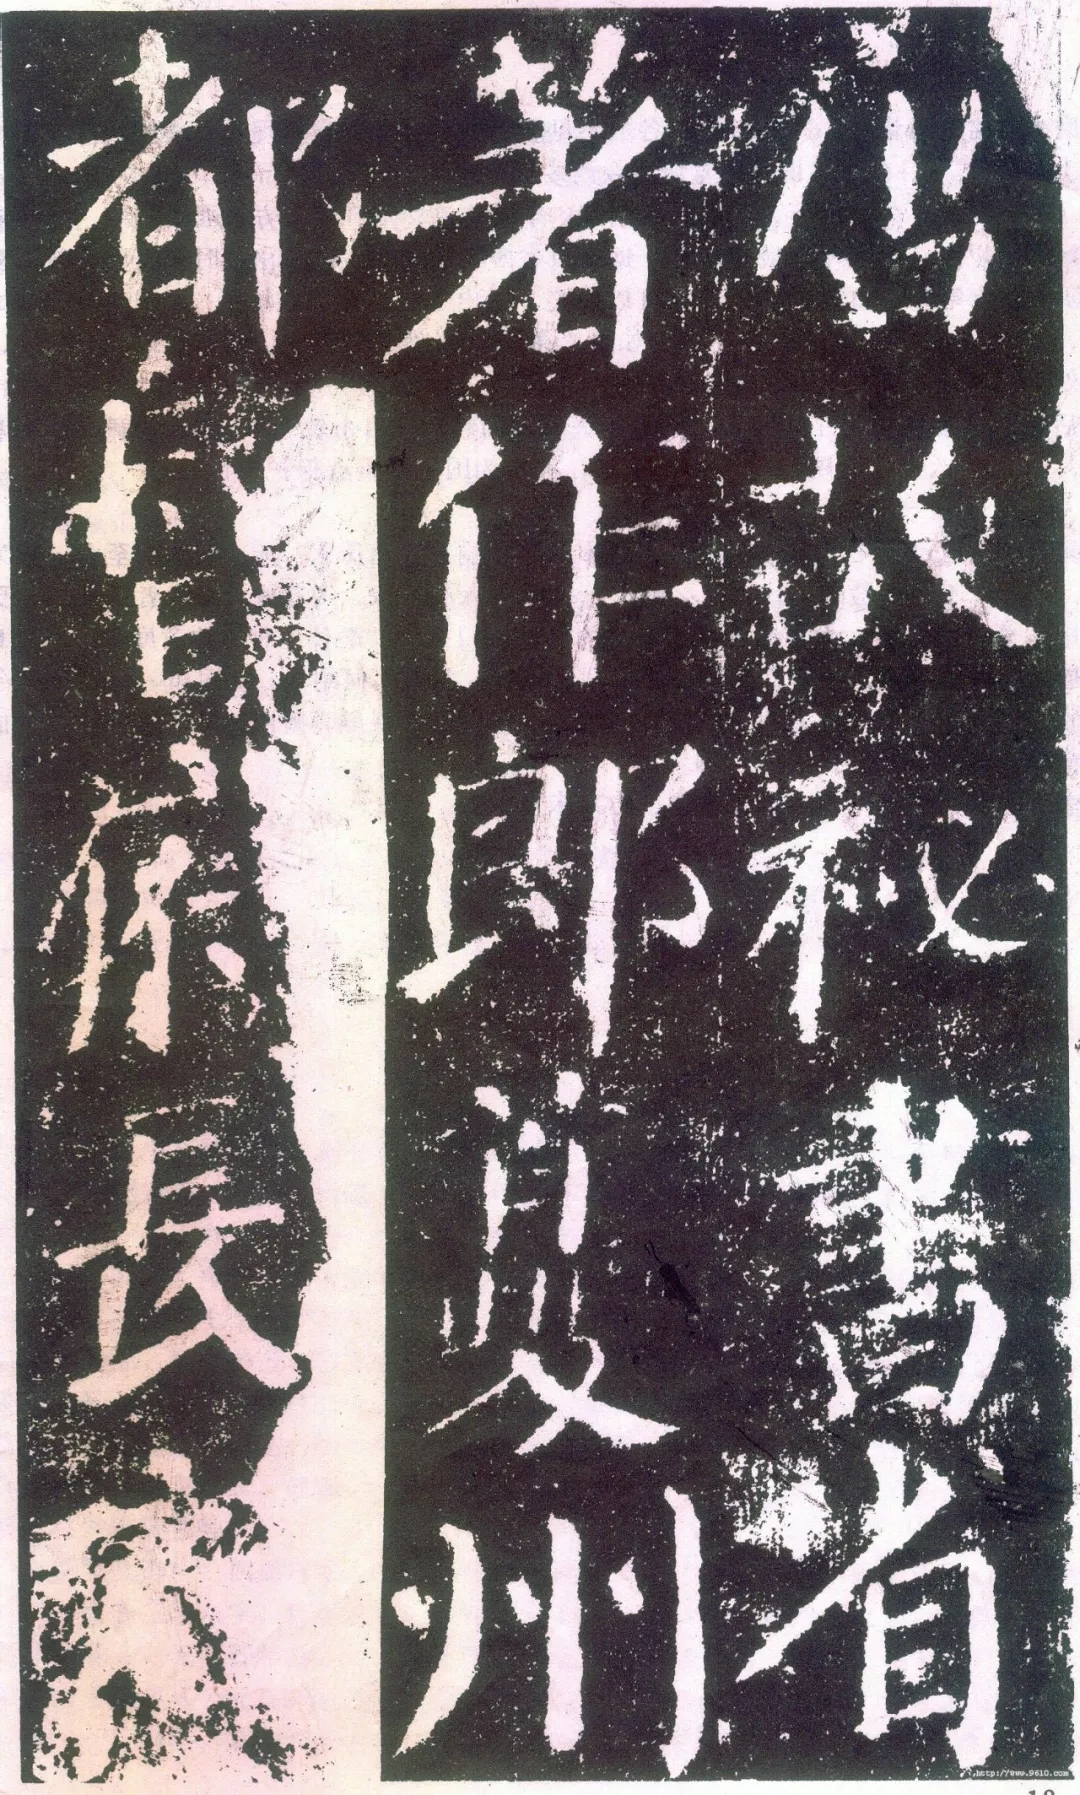 唐故祕書省
著作郎夔州
都督府長
http://www.9610.com